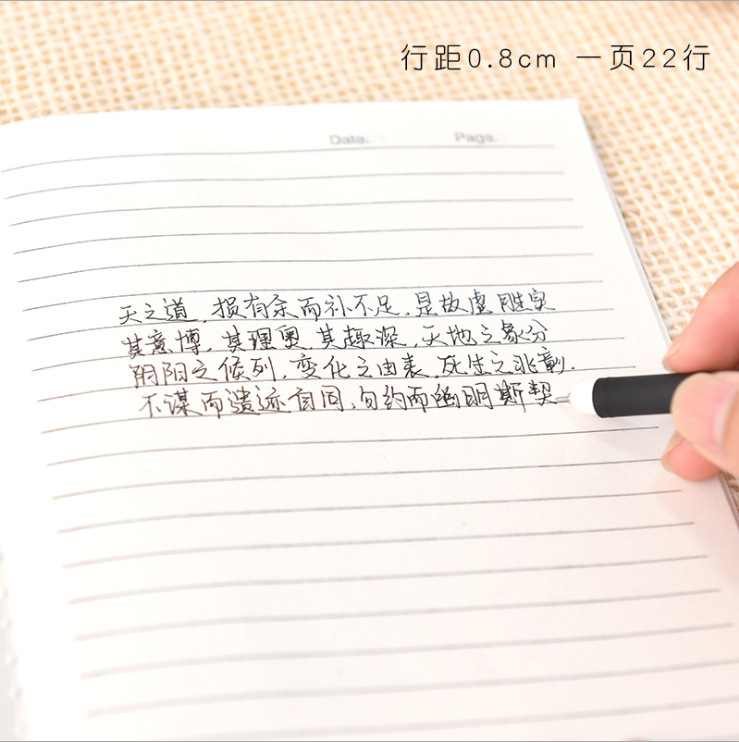 行距0.8cm 一页22行
Date. Page.
天之道,损有余而补不足,是故虚胜实
其意博,其理奥,其趣深,天地之象分
阴阳之候列,变化之由表,死生之兆彰.
不谋而遗迹自同,勿约而幽明斯契